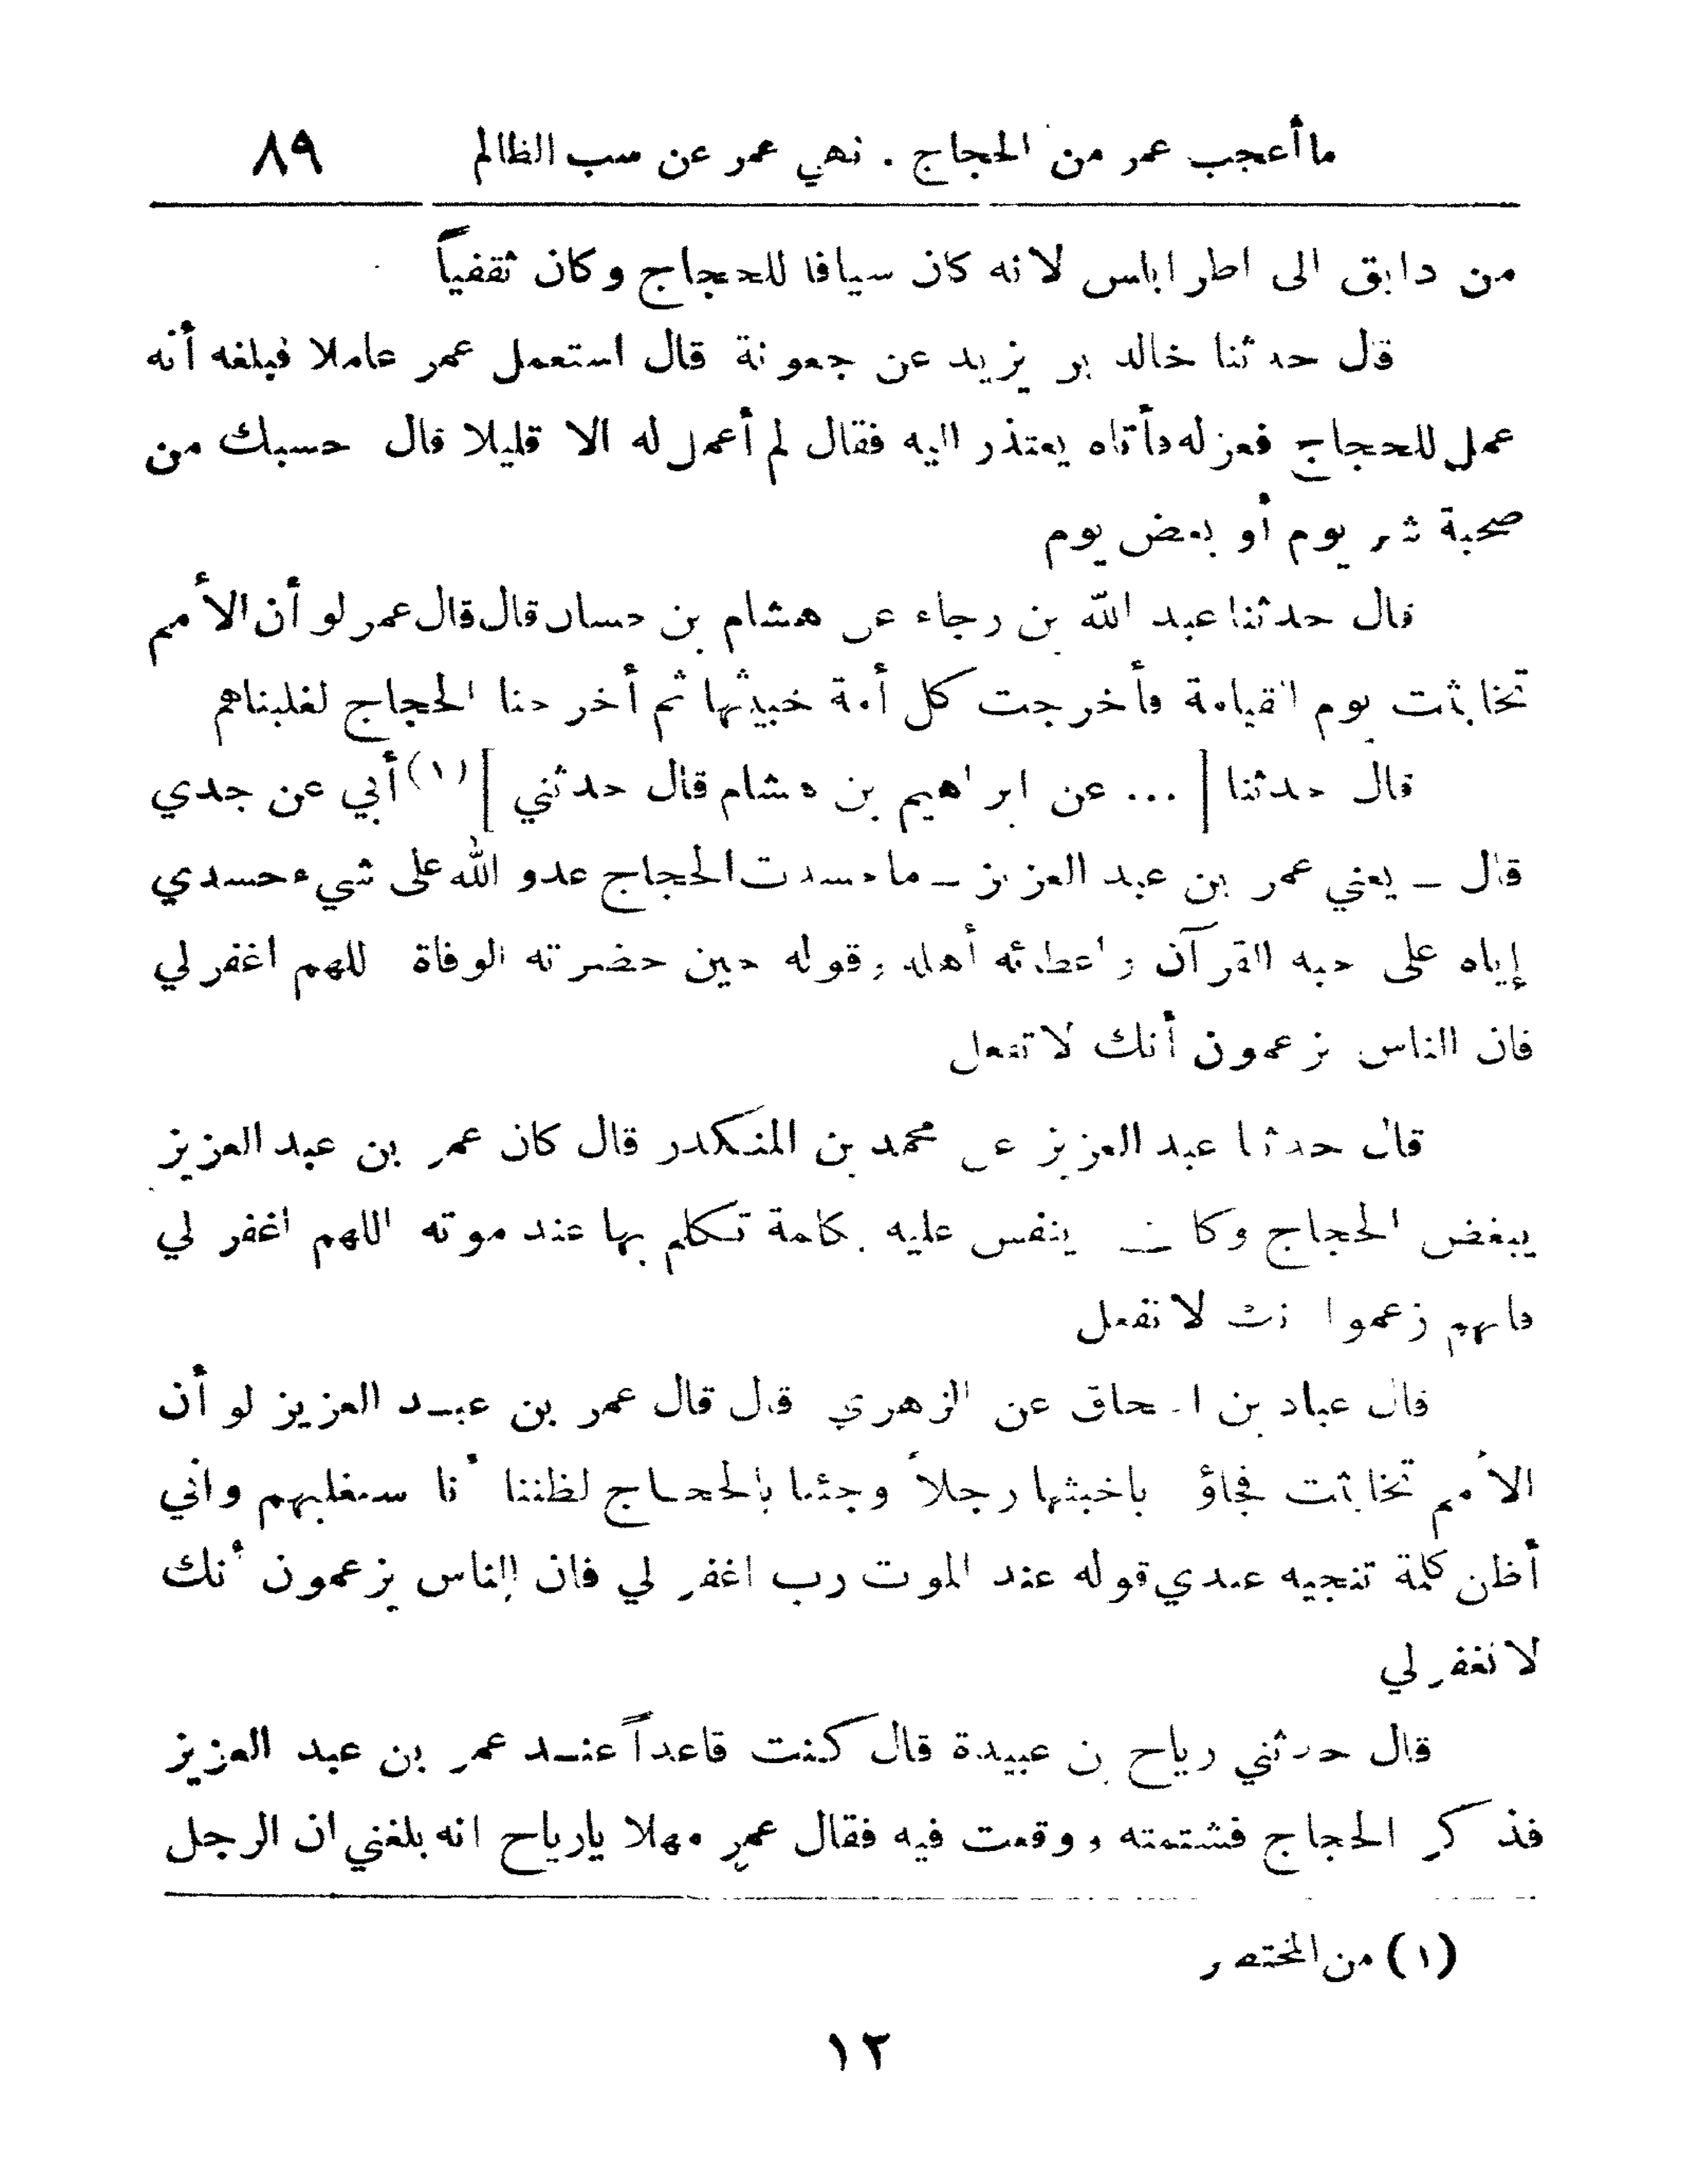 ما أعجب عمر من الحجاج . نهي عمر عن سب الظالم ٨٩
من دابق الى اطرابلس لانه كان سيافا للحجاج وكان ثقفياً
قال حدثنا خالد بن يزيد عن جعونة قال استعمل عمر عاملا فبلغه أنه
عمل للحجاج فعزله فأتاه يعتذر اليه فقال لم أعمل له الا قليلا قال حسبك من
صحبة شر يوم أو بعض يوم
قال حدثنا عبد الله بن رجاء عن هشام بن حسان قال قال عمر لو أن الأمم
تخابثت يوم القيامة فأخرجت كل أمة خبيثها ثم أخرجنا الحجاج لغلبناهم
قال حدثنا [ ... عن ابراهيم بن هشام قال حدثني ] (١) أبي عن جدي
قال – يعني عمر بن عبد العزيز – ما حسدت الحجاج عدو الله على شيء حسدي
إياه على حبه القرآن واعطائه أهله وقوله حين حضرته الوفاة اللهم اغفر لي
فان الناس يزعمون أنك لا تفعل
قال حدثنا عبد العزيز عن محمد بن المنكدر قال كان عمر بن عبد العزيز
يبغض الحجاج وكان ينفس عليه بكلمة تكلم بها عند موته اللهم اغفر لي
فانهم زعموا انك لا تفعل
قال عباد بن اسحاق عن الزهري قال قال عمر بن عبد العزيز لو أن
الأمم تخابثت فجاؤ باخبثها رجلاً وجئنا بالحجاج لظننا أنا سنغلبهم واني
أظن كلمة تنجيه عندي قوله عند الموت رب اغفر لي فان الناس يزعمون أنك
لا تغفر لي
قال حدثني رياح بن عبيدة قال كنت قاعداً عند عمر بن عبد العزيز
فذكر الحجاج فشتمته ووقعت فيه فقال عمر مهلا يارياح انه بلغني ان الرجل
(١) من المختصر
١٢